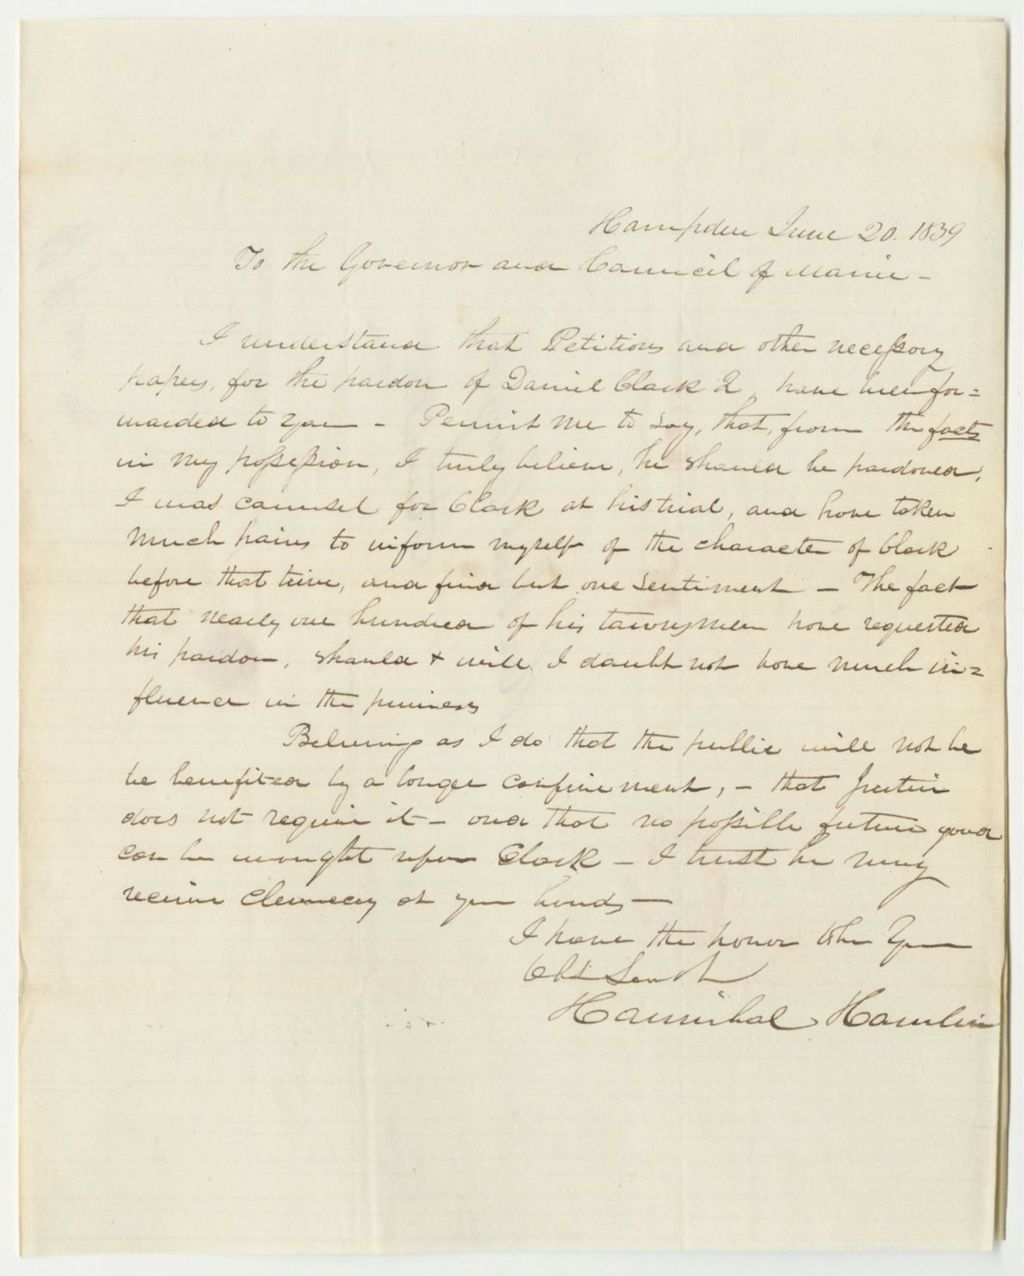 Hampden June 20. 1839
To the Governor and Council of Maine -
I understand that Petitions and other necessary
papers, for the pardon of Daniel Clark 2 have been for=
warded to you - Permit me to say, that, from the facts
in my possession, I truly believe, he should be pardoned.
I was counsel for Clark at his trial, and have taken
much pains to inform myself of the character of Clark
before that time, and find but one sentiment - The fact
that nearly one hundred of his townsmen have requested
his pardon, should & will, I doubt not have much in=
fluence in the premises
Believing as I do that the public will not be
be benefited by a longer confinement, - that Justice
does not require it - and that no possible future good
can be wrought upon Clark - I trust he may
receive clemency at your hands -
I have the honor to be Your
Obt Servt
Hannibal Hamlin